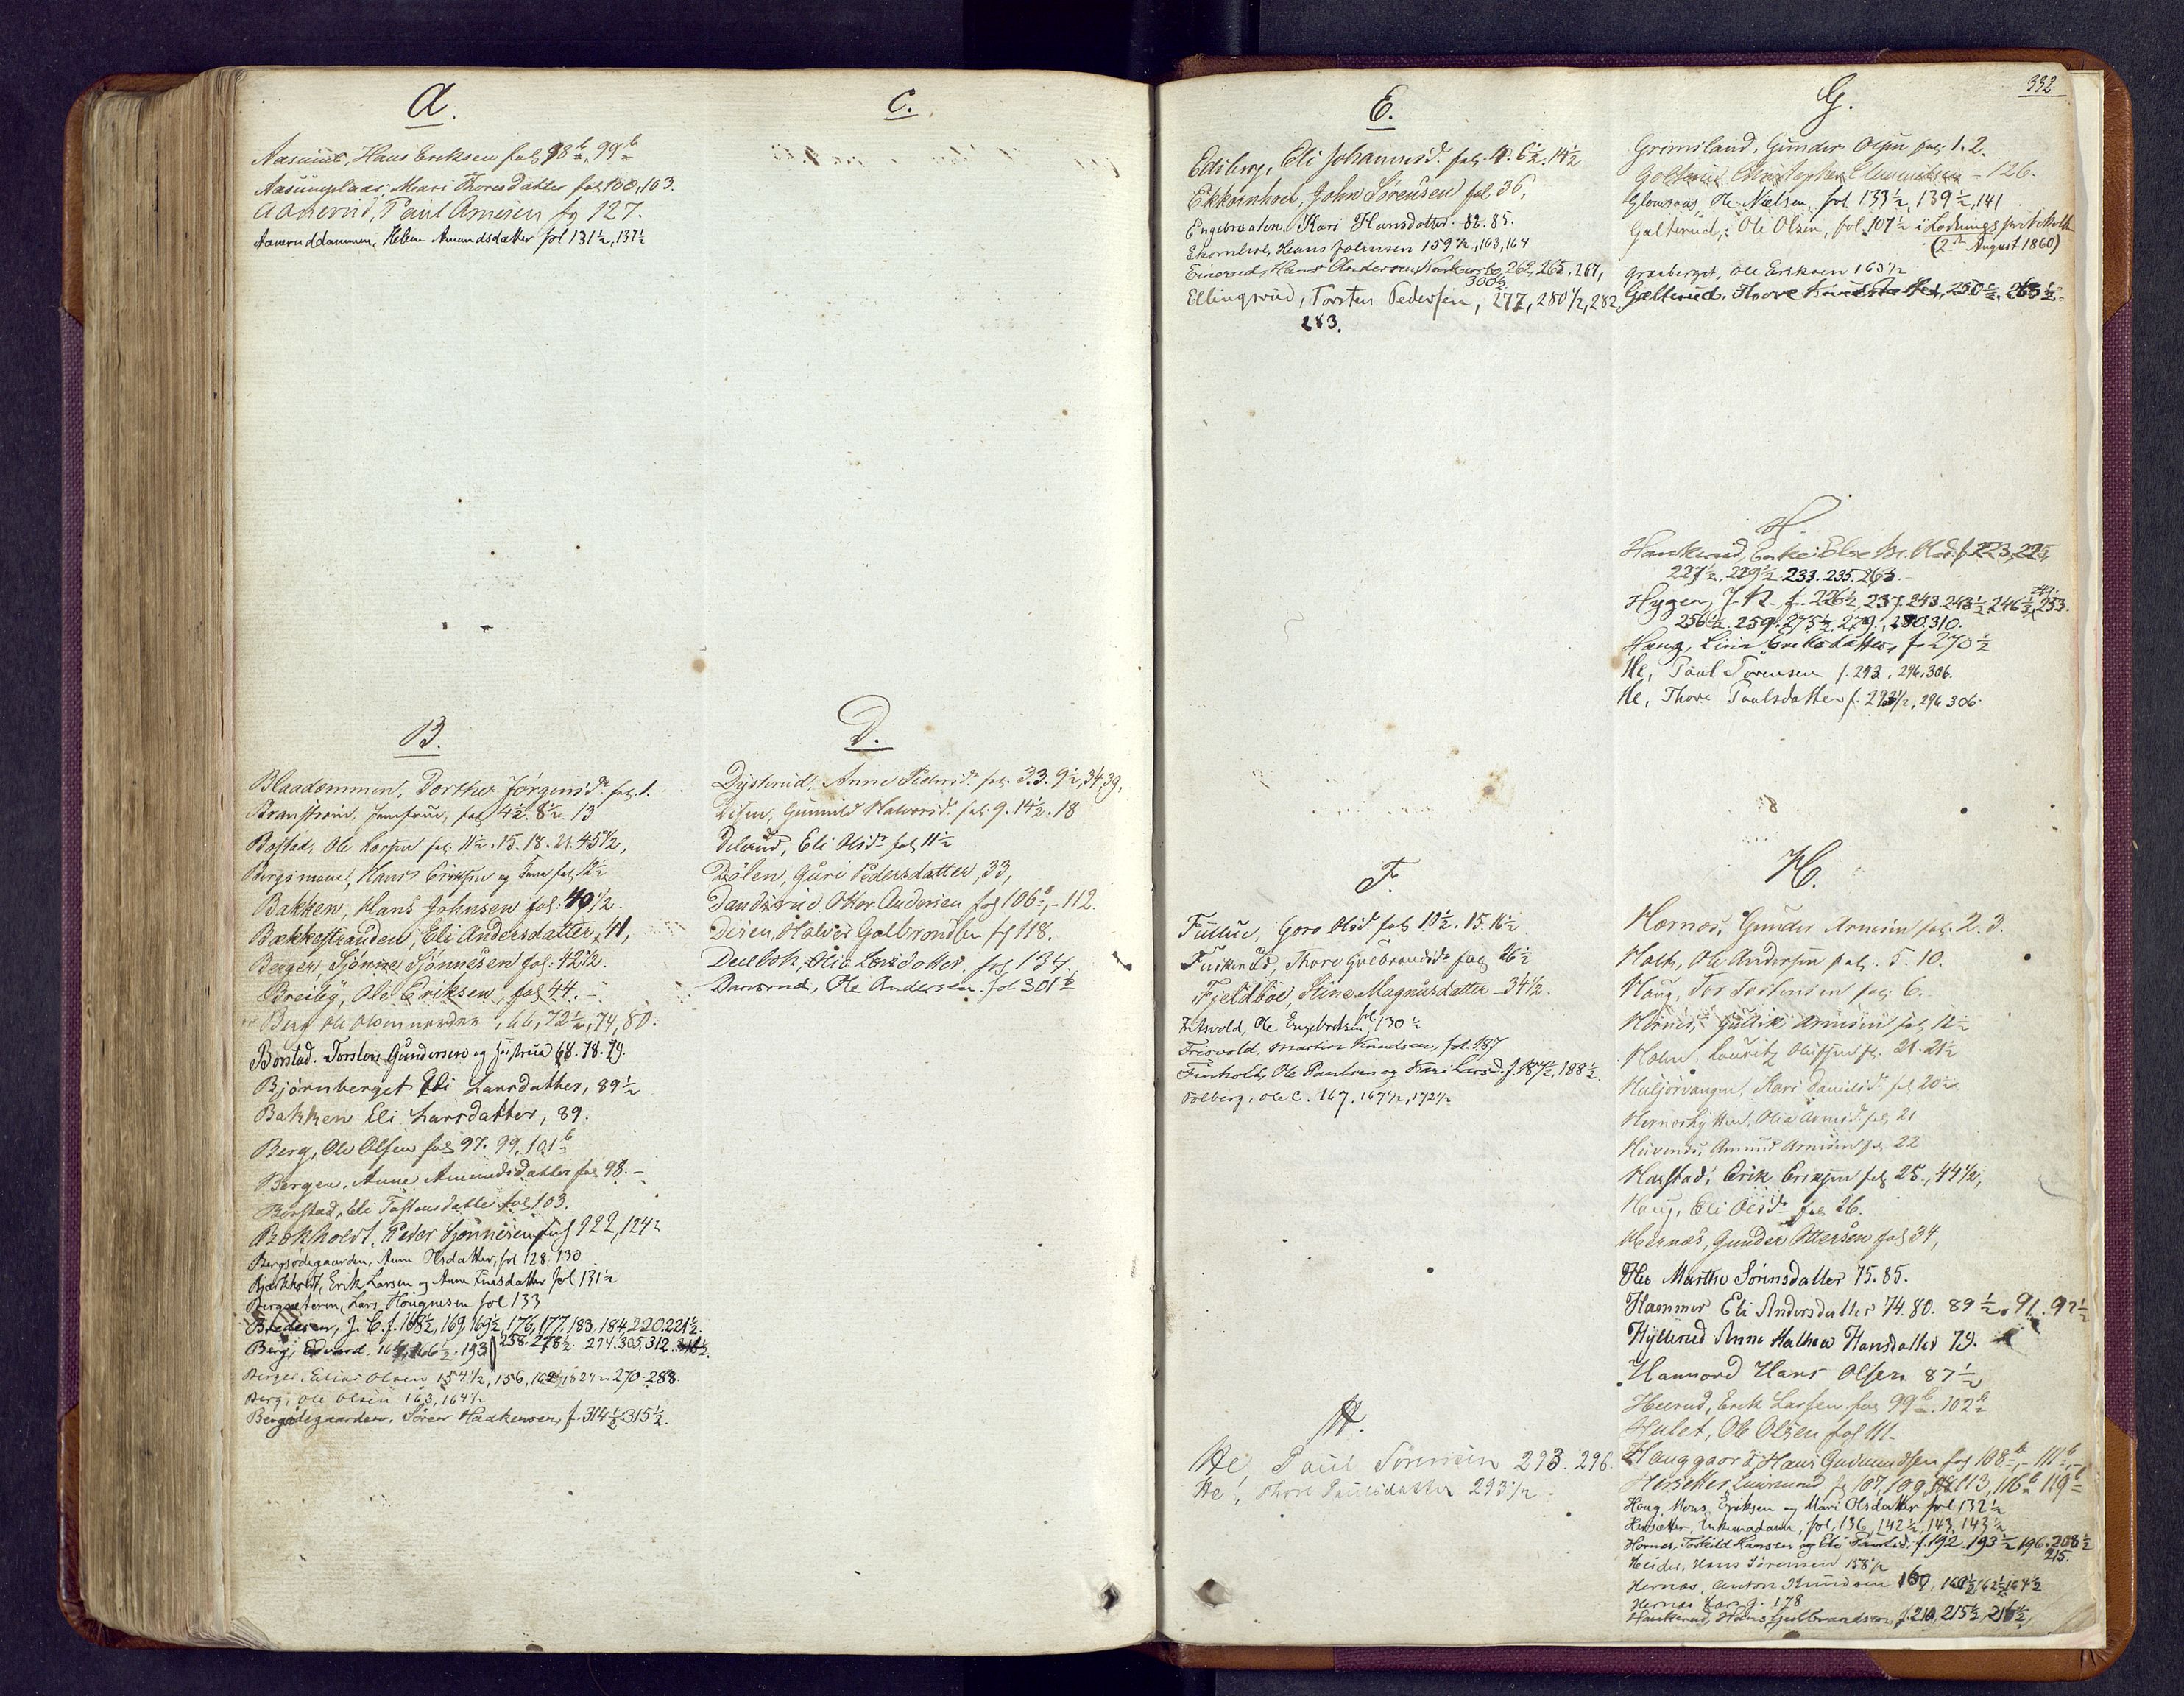 A.
Hans Eriksen fol 98 b, 99 b
Mari Thoresdatter fol 100, 103.
Paul Arnesen fg 127.
Aaseruddammen, Helene Amundsdatter fol 131½, 137½
B.
Blaadammen, Dorthe Jørgensd. fol. 1.
fol 4½. 8½. 13
Bostad, Ole fol. 11½. 15. 18. 21. 45½,
Hans Eriksen og fol 12½
Bakken, Hans Johnsen fol: 40½.
Bækkestranden, Eli Andersdatter, 41,
Berger, Sjønne Sjønnesen fol: 42½.
Breiley, Ole Eriksen, fol 44. -
Berg Ole 66, 72½, 74, 80.
Borstad. Torsten Gundersen og Hustrue 68. 78. 79.
Bjørnberget Eli Larsdatter, 89½
Bakken Eli Larsdatter, 89.
Berg, Ole Olsen fol 97. 99, 101 b
Bergen, Anne Amundsdatter fol 98. -
Borstad, Eli Tostensdatter fol 103.
Bokholdt, Peder Sjønnesen fol 122, 124½
Bergsødegaarden, Anne Olsdatter, fol 128. 130
Erik Larsen og Anne fol 131½
Bergsæteren, Lars Høugnesen fol 133
Bredesen, J. C. f. 168½, 169, 169½, 176, 177, 183, 184, 220, 221½.
Berg, Edvard. 164, 166½. 193, 258. 278½. 294. 305, 312.
Berger, Elias Olsen 154½, 156, 162½, 270. 288.
Berg, Ole Olsen 163, 164½
Bergødegaarden, Søren Haakensen, f. 314½ 315½.
C.
D.
Dysterud, Anne Pedersd. fol. 3. 3. 9½, 34, 39,
Disen, Gunnild Halvorsd. fol. 9. 14½. 18
Delerud, Eli Olsd. fol 11½
Dølen, Guri Pedersdatter, 33,
Otter Andersen fol 106 b, - 112.
Disen, Halvor Gulbrandsen fg 118.
Olia Larsdatter. fol 134.
Ole Andersen. fol 301½
E.
Edsberg, Eli Johannesd. fol. 4. 6½. 14½
Ekkornhoel, John Sørensen fol 36,
Engebraaten. Kari Hansdatter. 82. 85.
Ekornhol, Hans Johnsen 159½, 163, 164
Einerud, Hans Andersen 262, 265, 267,
300½
Ellingsrud, Torsten Pedersen, 277, 280½, 282,
283.
F.
Goro Olsd. fol 10½. 15. 16½
Thore Gulbrandsd. fol 26½
Fjeldboe, Stine Magnusdatter - 34½.
Ole Engebretsen fol 130½
Martin Knudsen, fol. 187
Finholt, Ole Paulsen og Kari Larsd. f. 187½, 188½.
Folberg, Ole C. 167. 167½, 172½
H.
He, Paul Sørensen 293. 296.
He, Thore Paulsdatter 293½.
332
G.
Grimsland, Gunder Olsen fol. 1. 2.
Galterud, Christopher Clemmetsen - 126.
Glomsaas, Ole Nielsen, fol. 133½, 139½, 141
Galterud, Ole Olsen, fol. 107½ i
(2den August 1860)
Graaberget, Ole Eriksen 163½
Galterud, Thore 250½, 265½
H.
Haukerud, Enke Else Olsd. f. 223, 225,
227½, 229½. 233. 235. 263.
Hygen, J. N. f. 226½, 237. 243. 243½, 246½, 249. 253.
256½. 259. 275½, 279, 280. 310.
Haug, Lina Eriksdatter f. 270½
He, Paul Sørensen f. 293, 296, 306.
He, Thore Paulsdatter f. 293½, 296 306.
H.
Hernæs, Gunder Arnesen fol. 2. 3.
Holt, Ole Andersen fol. 5. 10.
Haug, Tostensen fol. 6.
Hernæs, Gullik Arnesen fol 12½
Holm, Lauritz fol. 21. 21½
Kari Danielsd. fol 20½
Olia Arnesd. fol. 21
Amund Arnesen fol. 22
Harstad, Erik Eriksen fol 25, 44½,
Haug, Eli Olsd. fol 26.
Hernæs, Gunder Ottersen fol 34,
Hee Marthe Sørensdatter 75. 85.
Hammer Eli Andersdatter 74. 80. 89½. 91. 92½
Hyllerud Anne Mathea Hansdatter 79.
Hans Olsen 87½
Heerud, Erik Larsen fol 99 b. 102 b
Hulet, Ole Olsen fol 111-
Hauggaard, Hans Gudmundsen fol 108 b, - 111 b, -
fg 107, 109, 113, 116 b 119 b
Haug, Mons Eriksen og Mari Olsdatter fol 132½
Enkemadame, fol. 136, 142½, 143, 143½
Hornes, Torkild Hansen og Eli f. 192. 193½ 196. 208½
215.
Hans Sørensen 158½
Hernæs, Anton Knudsen 160, 161½, 162½, 164½
Hernæs Lars J. 178
Haukerud, Hans Gulbrandsen, f. 210, 215½, 216½,